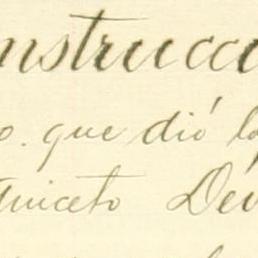 nstrucci
o. que dió la
niceto Dév